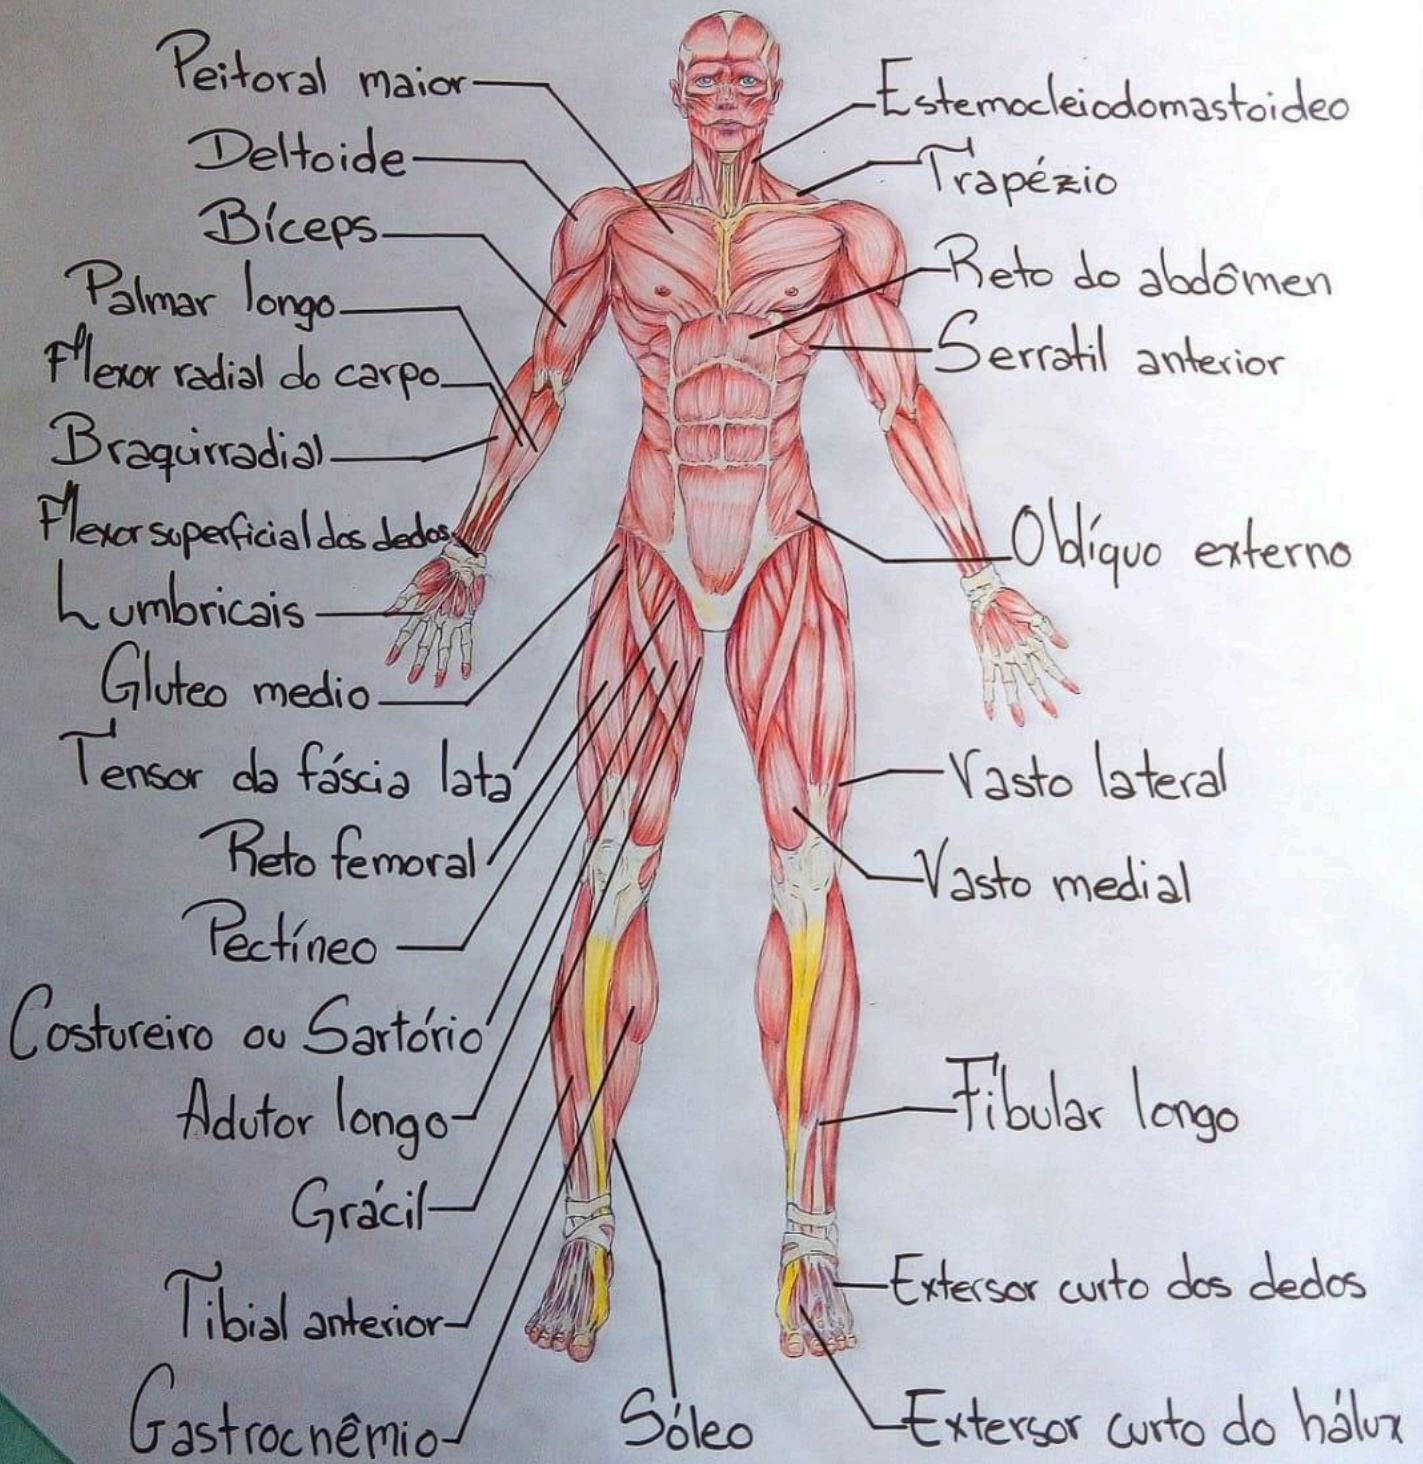 Peitoral maior
Deltoide
Bíceps
Palmar longo
Flexor radial do carpo
Braquirradial
Flexor superficial dos dedos
Lumbricais
Gluteo medio
Tensor da fáscia lata
Reto femoral
Pectíneo
Costureiro ou Sartório
Adutor longo
Grácil
Tibial anterior
Gastrocnêmio
Sóleo
Estemocleiodomastoideo
Trapézio
Reto do abdômen
Serratil anterior
Oblíquo externo
Vasto lateral
Vasto medial
Fibular longo
Extersor curto dos dedos
Extersor curto do hálux